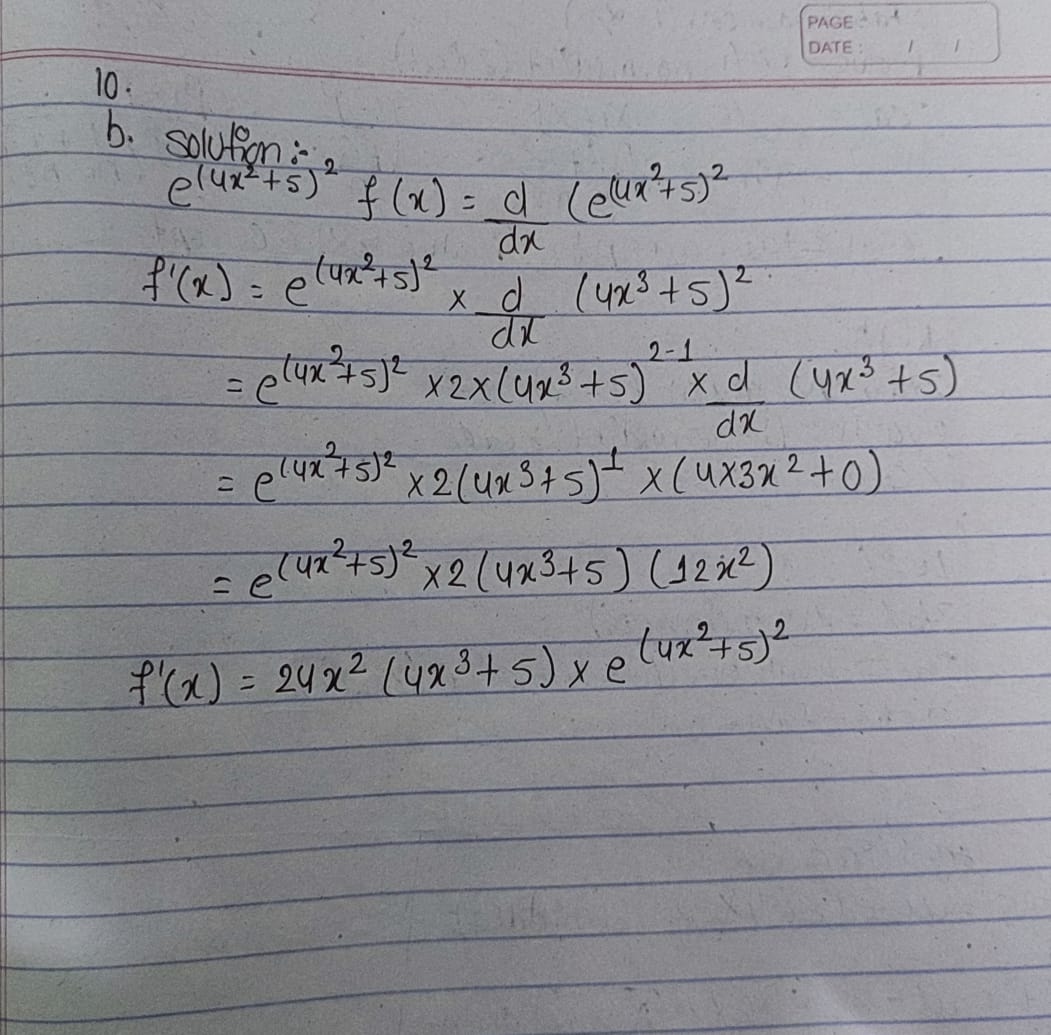 PAGE :
DATE : / /
10.
b. solution :-
e^(4x²+5)² f(x) = d/dx (e^(4x²+5)²
f'(x) = e^(4x²+5)² × d/dx (4x³+5)²
= e^(4x²+5)² ×2×(4x³+5)^2-1 × d/dx (4x³+5)
= e^(4x²+5)² ×2(4x³+5)^1 ×(4×3x²+0)
= e^(4x²+5)² ×2(4x³+5) (12x²)
f'(x) = 24x² (4x³+5) × e^(4x²+5)²